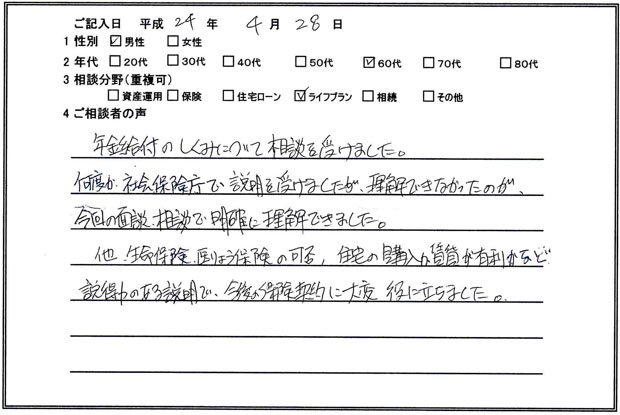 ご記入日 平成 24 年 4 月 28 日
1 性別 ☑男性 □女性
2 年代 □20代 □30代 □40代 □50代 ☑60代 □70代 □80代
3 相談分野(重複可)
□資産運用 □保険 □住宅ローン ☑ライフプラン □相続 □その他
4 ご相談者の声
年金給付のしくみについて相談を受けました。
何度か社会保険庁で説明を受けましたが、理解できなかったのが、
今回の面談、相談で明確に理解できました。
他、生命保険、医りょう保険の可否、住宅の購入か賃貸が有利かなど
説得力のある説明で、今後の保険契約に大変役に立ちました。